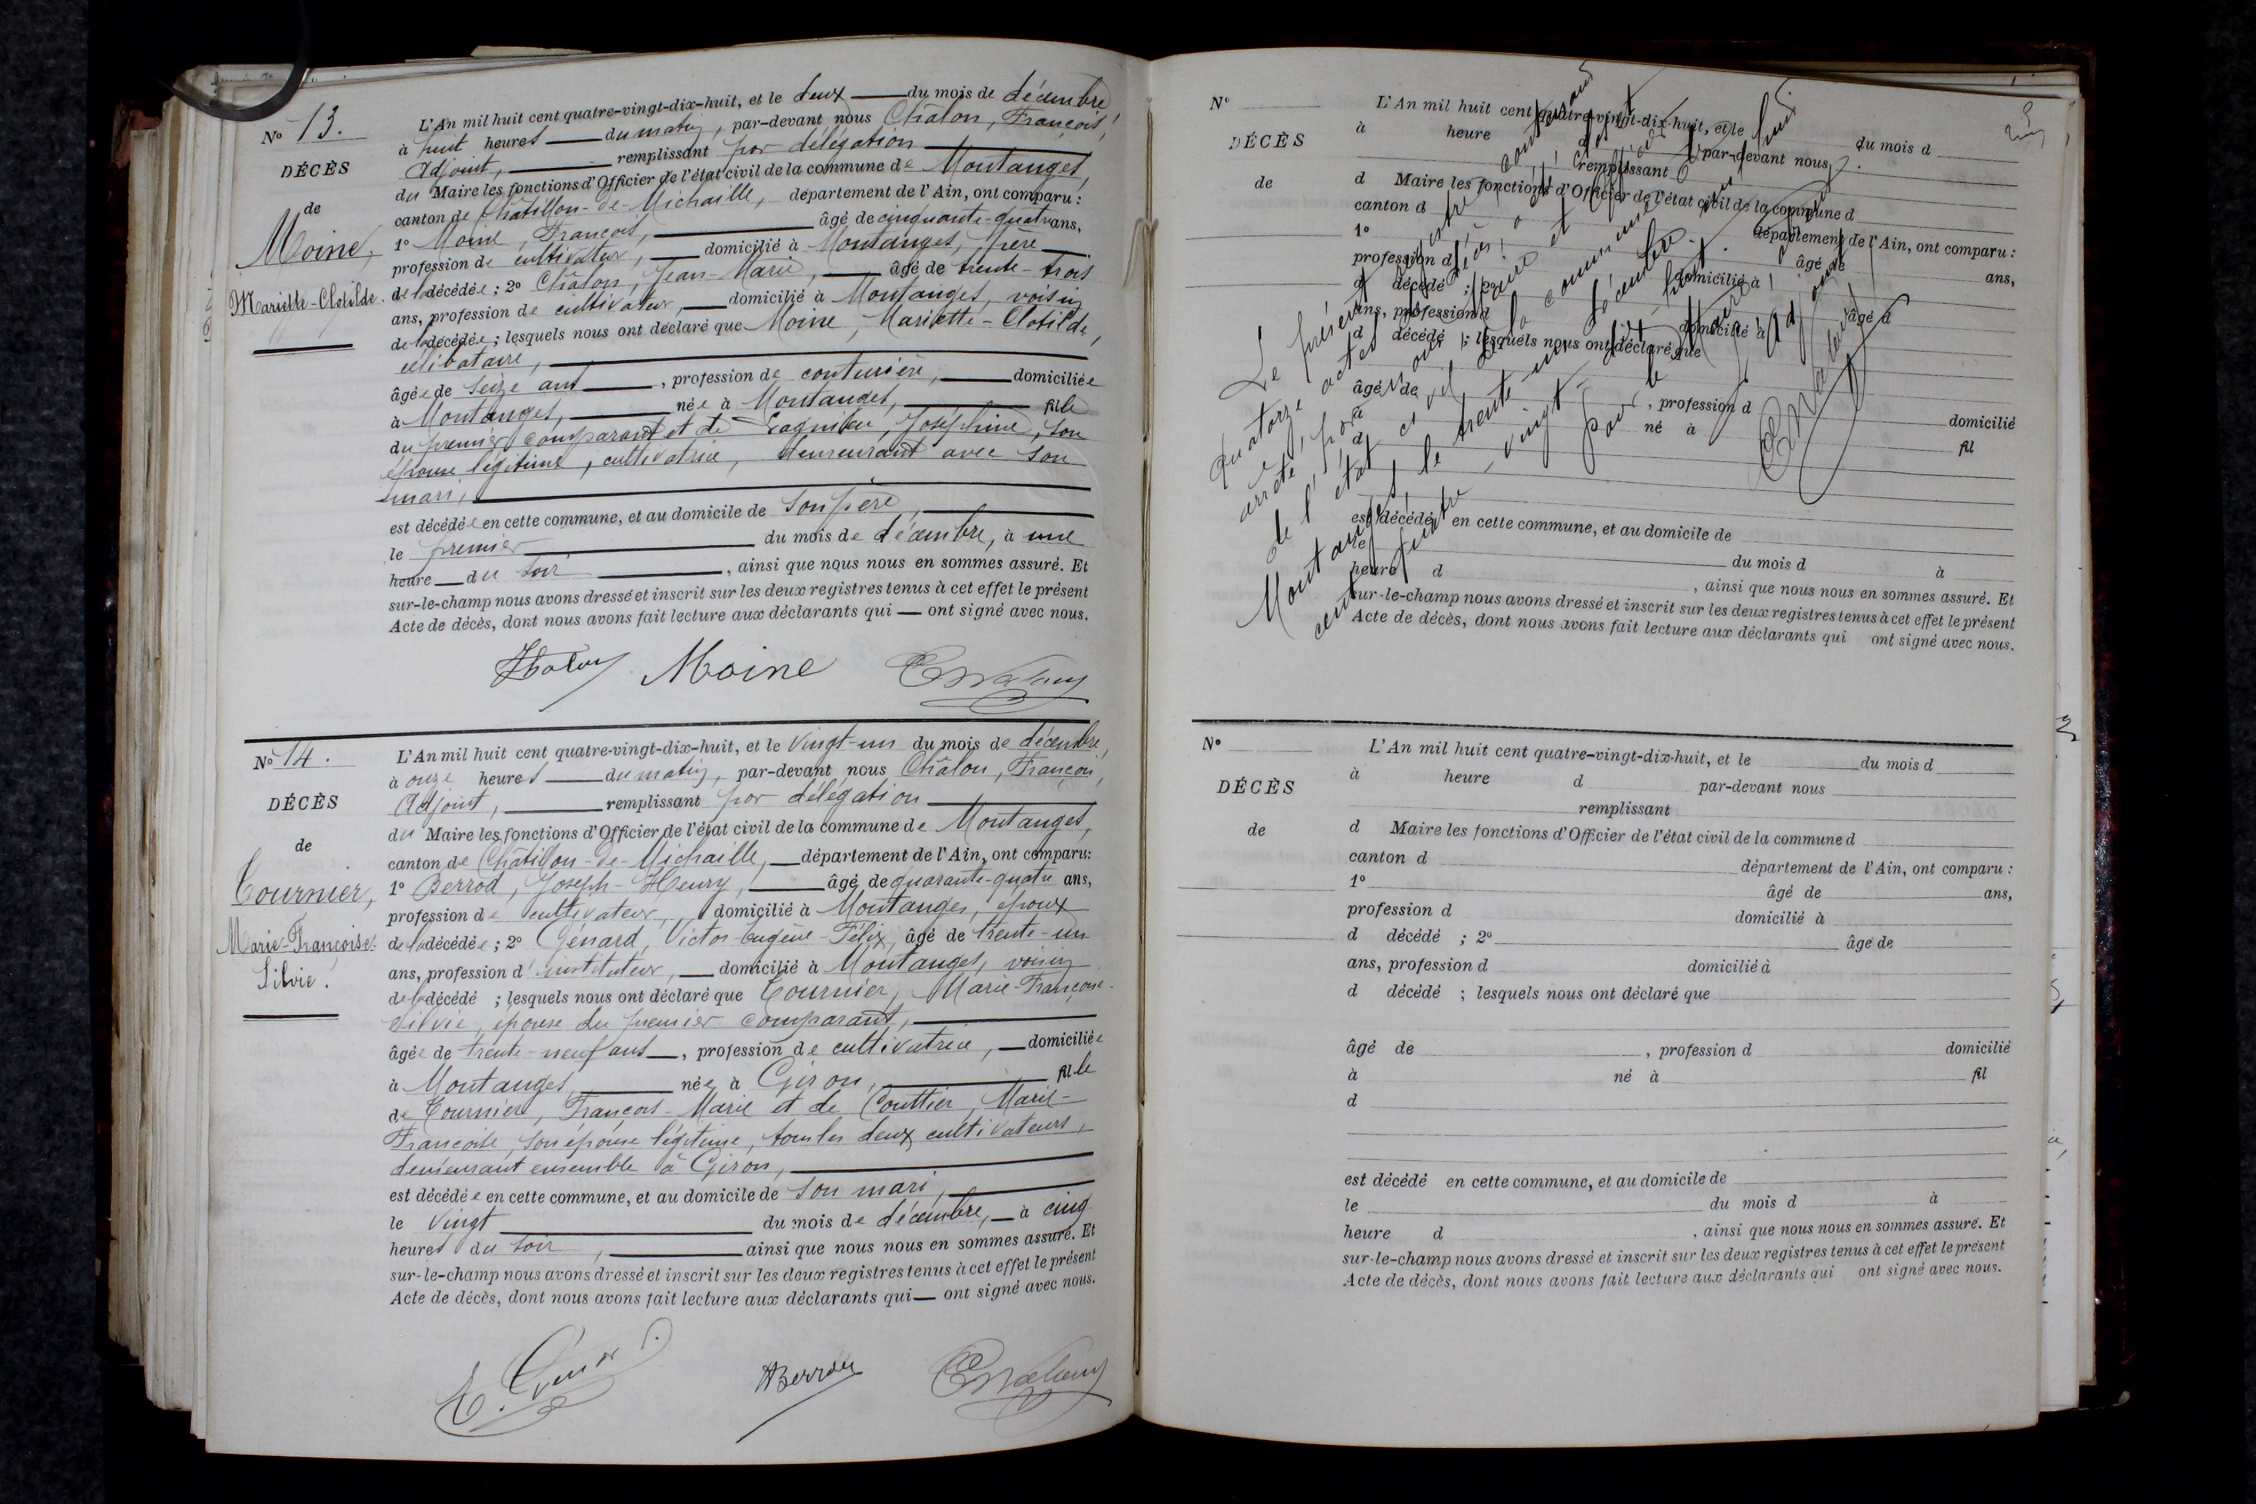 N° 13.
DÉCÈS
de
Moine,
Mariette-Clotilde.
L'An mil huit cent quatre-vingt-dix-huit, et le deux du mois de décembre,
à huit heures du matin, par-devant nous Châlon, François,
Adjoint, remplissant par délégation
du Maire les fonctions d'Officier de l'état civil de la commune de Montanges,
canton de Châtillon-de-Michaille, département de l'Ain, ont comparu :
1° Moine, François, âgé de cinquante-quatre ans,
profession de cultivateur, domicilié à Montanges, père
de la décédée ; 2° Châlon, Jean-Marie, âgé de trente-trois
ans, profession de cultivateur, domicilié à Montanges, voisin
de la décédée ; lesquels nous ont déclaré que Moine, Mariette-Clotilde,
célibataire,
âgée de seize ans, profession de couturière, domiciliée
à Montanges, née à Montanges, fille
du premier comparant et de Joséphine, son
épouse légitime, cultivatrice, demeurant avec son
mari,
est décédée en cette commune, et au domicile de son père,
le premier du mois de décembre, à une
heure du soir, ainsi que nous nous en sommes assuré. Et
sur-le-champ nous avons dressé et inscrit sur les deux registres tenus à cet effet le présent
Acte de décès, dont nous avons fait lecture aux déclarants qui ont signé avec nous.
Moine
N° 14.
DÉCÈS
de
Tournier,
Marie-Françoise-
Silvie.
L'An mil huit cent quatre-vingt-dix-huit, et le vingt-un du mois de décembre,
à onze heures du matin, par-devant nous Châlon, François,
Adjoint, remplissant par délégation
du Maire les fonctions d'Officier de l'état civil de la commune de Montanges,
canton de Châtillon-de-Michaille, département de l'Ain, ont comparu :
1° Berrod, Joseph-Henry, âgé de quarante-quatre ans,
profession de cultivateur, domicilié à Montanges, époux
de la décédée ; 2° Génard, Victor-Eugène-Félix, âgé de trente-un
ans, profession d'instituteur, domicilié à Montanges, voisin
de la décédé ; lesquels nous ont déclaré que Tournier, Marie-Françoise-
Silvie, épouse du premier comparant,
âgée de trente-neuf ans, profession de cultivatrice, domiciliée
à Montanges, née à Giron, fille
de Tournier, François-Marie et de Couttier, Marie-
Françoise, son épouse légitime, tous les deux cultivateurs,
demeurant ensemble à Giron,
est décédée en cette commune, et au domicile de son mari,
le vingt du mois de décembre, à cinq
heures du soir, ainsi que nous nous en sommes assuré. Et
sur-le-champ nous avons dressé et inscrit sur les deux registres tenus à cet effet le présent
Acte de décès, dont nous avons fait lecture aux déclarants qui ont signé avec nous.
HBerrod
N°
DÉCÈS
de
L'An mil huit cent quatre-vingt-dix-huit, et le du mois d
à heure d par-devant nous
remplissant
d Maire les fonctions d'Officier de l'état civil de la commune d
canton d département de l'Ain, ont comparu :
1° âgé de ans,
profession d domicilié à
d décédé ; 2° âgé d
ans, profession d domicilié à
d décédé ; lesquels nous ont déclaré que
âgé de , profession d domicilié
à né à fil
d
est décédé en cette commune, et au domicile de
le du mois d à
heure d , ainsi que nous nous en sommes assuré. Et
sur-le-champ nous avons dressé et inscrit sur les deux registres tenus à cet effet le présent
Acte de décès, dont nous avons fait lecture aux déclarants qui ont signé avec nous.
Le présent registre contenant
quatorze actes de décès, a été clos et
arrêté, par nous Maire et Officier
de l'état civil de la commune de
Montanges, le trente-un décembre mil huit
cent quatre-vingt-dix-huit.
Pour le Maire,
l'Adjoint
N°
DÉCÈS
de
L'An mil huit cent quatre-vingt-dix-huit, et le du mois d
à heure d par-devant nous
remplissant
d Maire les fonctions d'Officier de l'état civil de la commune d
canton d département de l'Ain, ont comparu :
1° âgé de ans,
profession d domicilié à
d décédé ; 2° âgé de
ans, profession d domicilié à
d décédé ; lesquels nous ont déclaré que
âgé de , profession d domicilié
à né à fil
d
est décédé en cette commune, et au domicile de
le du mois d à
heure d , ainsi que nous nous en sommes assuré. Et
sur-le-champ nous avons dressé et inscrit sur les deux registres tenus à cet effet le présent
Acte de décès, dont nous avons fait lecture aux déclarants qui ont signé avec nous.